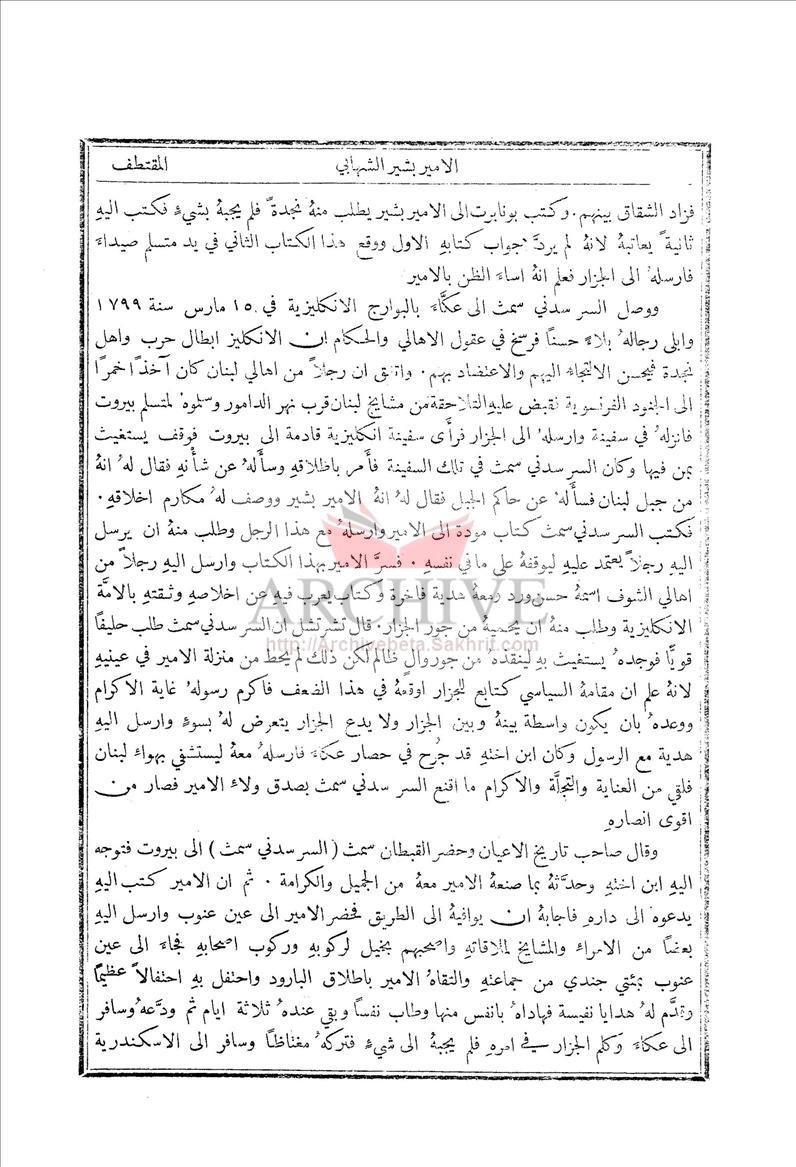 الامير بشير الشهابي
المقتطف
فزاد الشقاق بينهم. وكتب بونابرت الى الامير بشير يطلب منهُ نجدةً فلم يجبهُ بشيءٍ فكتب اليهِ
ثانيةً يعاتبهُ لانهُ لم يردَّ جواب كتابهِ الاول ووقع هذا الكتاب الثاني في يد متسلم صيداءَ
فارسلهُ الى الجزار فعلم انهُ اساءَ الظن بالامير
ووصل السر سدني سمث الى عكَّاءَ بالبوارج الانكليزية في ١٥ مارس سنة ١٧٩٩
وابلى رجالهُ بلاءً حسنًا فرسخ في عقول الاهالي والحكام ان الانكليز ابطال حرب واهل
نجدة فيحسن الالتجاءُ اليهم والاعتضاد بهم. واتفق ان رجلاً من اهالي لبنان كان آخذًا خمرًا
الى الجنود الفرنسوية فقبض عليهِ التلاحقة من مشايخ لبنان قرب نهر الدامور وسلموهُ لمتسلم بيروت
فانزلهُ في سفينة وارسلهُ الى الجزار فرأى سفينة انكليزية قادمة الى بيروت فوقف يستغيث
بمن فيها وكان السر سدني سمث في تلك السفينة فأمر باطلاقهِ وسألهُ عن شأنهِ فقال لهُ انهُ
من جبل لبنان فسألهُ عن حاكم الجبل فقال لهُ انهُ الامير بشير ووصف لهُ مكارم اخلاقهِ.
فكتب السر سدني سمث كتاب مودة الى الامير وارسلهُ مع هذا الرجل وطلب منهُ ان يرسل
اليهِ رجلاً يعتمد عليهِ ليوقفهُ على ما في نفسهِ. فسرَّ الامير بهذا الكتاب وارسل اليهِ رجلاً من
اهالي الشوف اسمهُ حسن ورد ومعهُ هدية فاخرة وكتاب يعرب فيهِ عن اخلاصهِ وثقتهِ بالامَّة
الانكليزية وطلب منهُ ان يحميهُ من جور الجزار. قال تشرتشل ان السر سدني سمث طلب حليفًا
قويًّا فوجدهُ يستغيث بهِ لينقذهُ من جور والٍ ظالم لكن ذلك لم يحط من منزلة الامير في عينيهِ
لانهُ علم ان مقامهُ السياسي كتابع للجزار اوقعهُ في هذا الضعف فاكرم رسولهُ غاية الاكرام
ووعدهُ بان يكون واسطة بينهُ وبين الجزار ولا يدع الجزار يتعرض لهُ بسوءٍ وارسل اليهِ
هدية مع الرسول وكان ابن اختهِ قد جُرح في حصار عكاءَ فارسلهُ معهُ ليستشفي بهواء لبنان
فلقي من العناية والتجلَّة والاكرام ما اقنع السر سدني سمث بصدق ولاءِ الامير فصار من
اقوى انصارهِ
وقال صاحب تاريخ الاعيان وحضر القبطان سمث (السر سدني سمث) الى بيروت فتوجه
اليهِ ابن اختهِ وحدَّثهُ بما صنعهُ الامير معهُ من الجميل والكرامة. ثم ان الامير كتب اليهِ
يدعوهُ الى دارهِ فاجابهُ ان يوافيهُ الى الطريق فحضر الامير الى عين عنوب وارسل اليهِ
بعضًا من الامراء والمشايخ لملاقاتهِ واصحبهم بخيل لركوبهِ وركوب اصحابهِ فجاءَ الى عين
عنوب بمئتي جندي من جماعتهِ والتقاهُ الامير باطلاق البارود واحتفل بهِ احتفالاً عظيمًا
وقدَّم لهُ هدايا نفيسة فهاداهُ بانفس منها وطاب نفسًا وبقي عندهُ ثلاثة ايام ثم ودَّعهُ وسافر
الى عكاءَ وكلم الجزار في امرهِ فلم يجبهُ الى شيءٍ فتركهُ مغتاظًا وسافر الى الاسكندرية
ARCHIVE
http://Archivebeta.Sakhrit.com